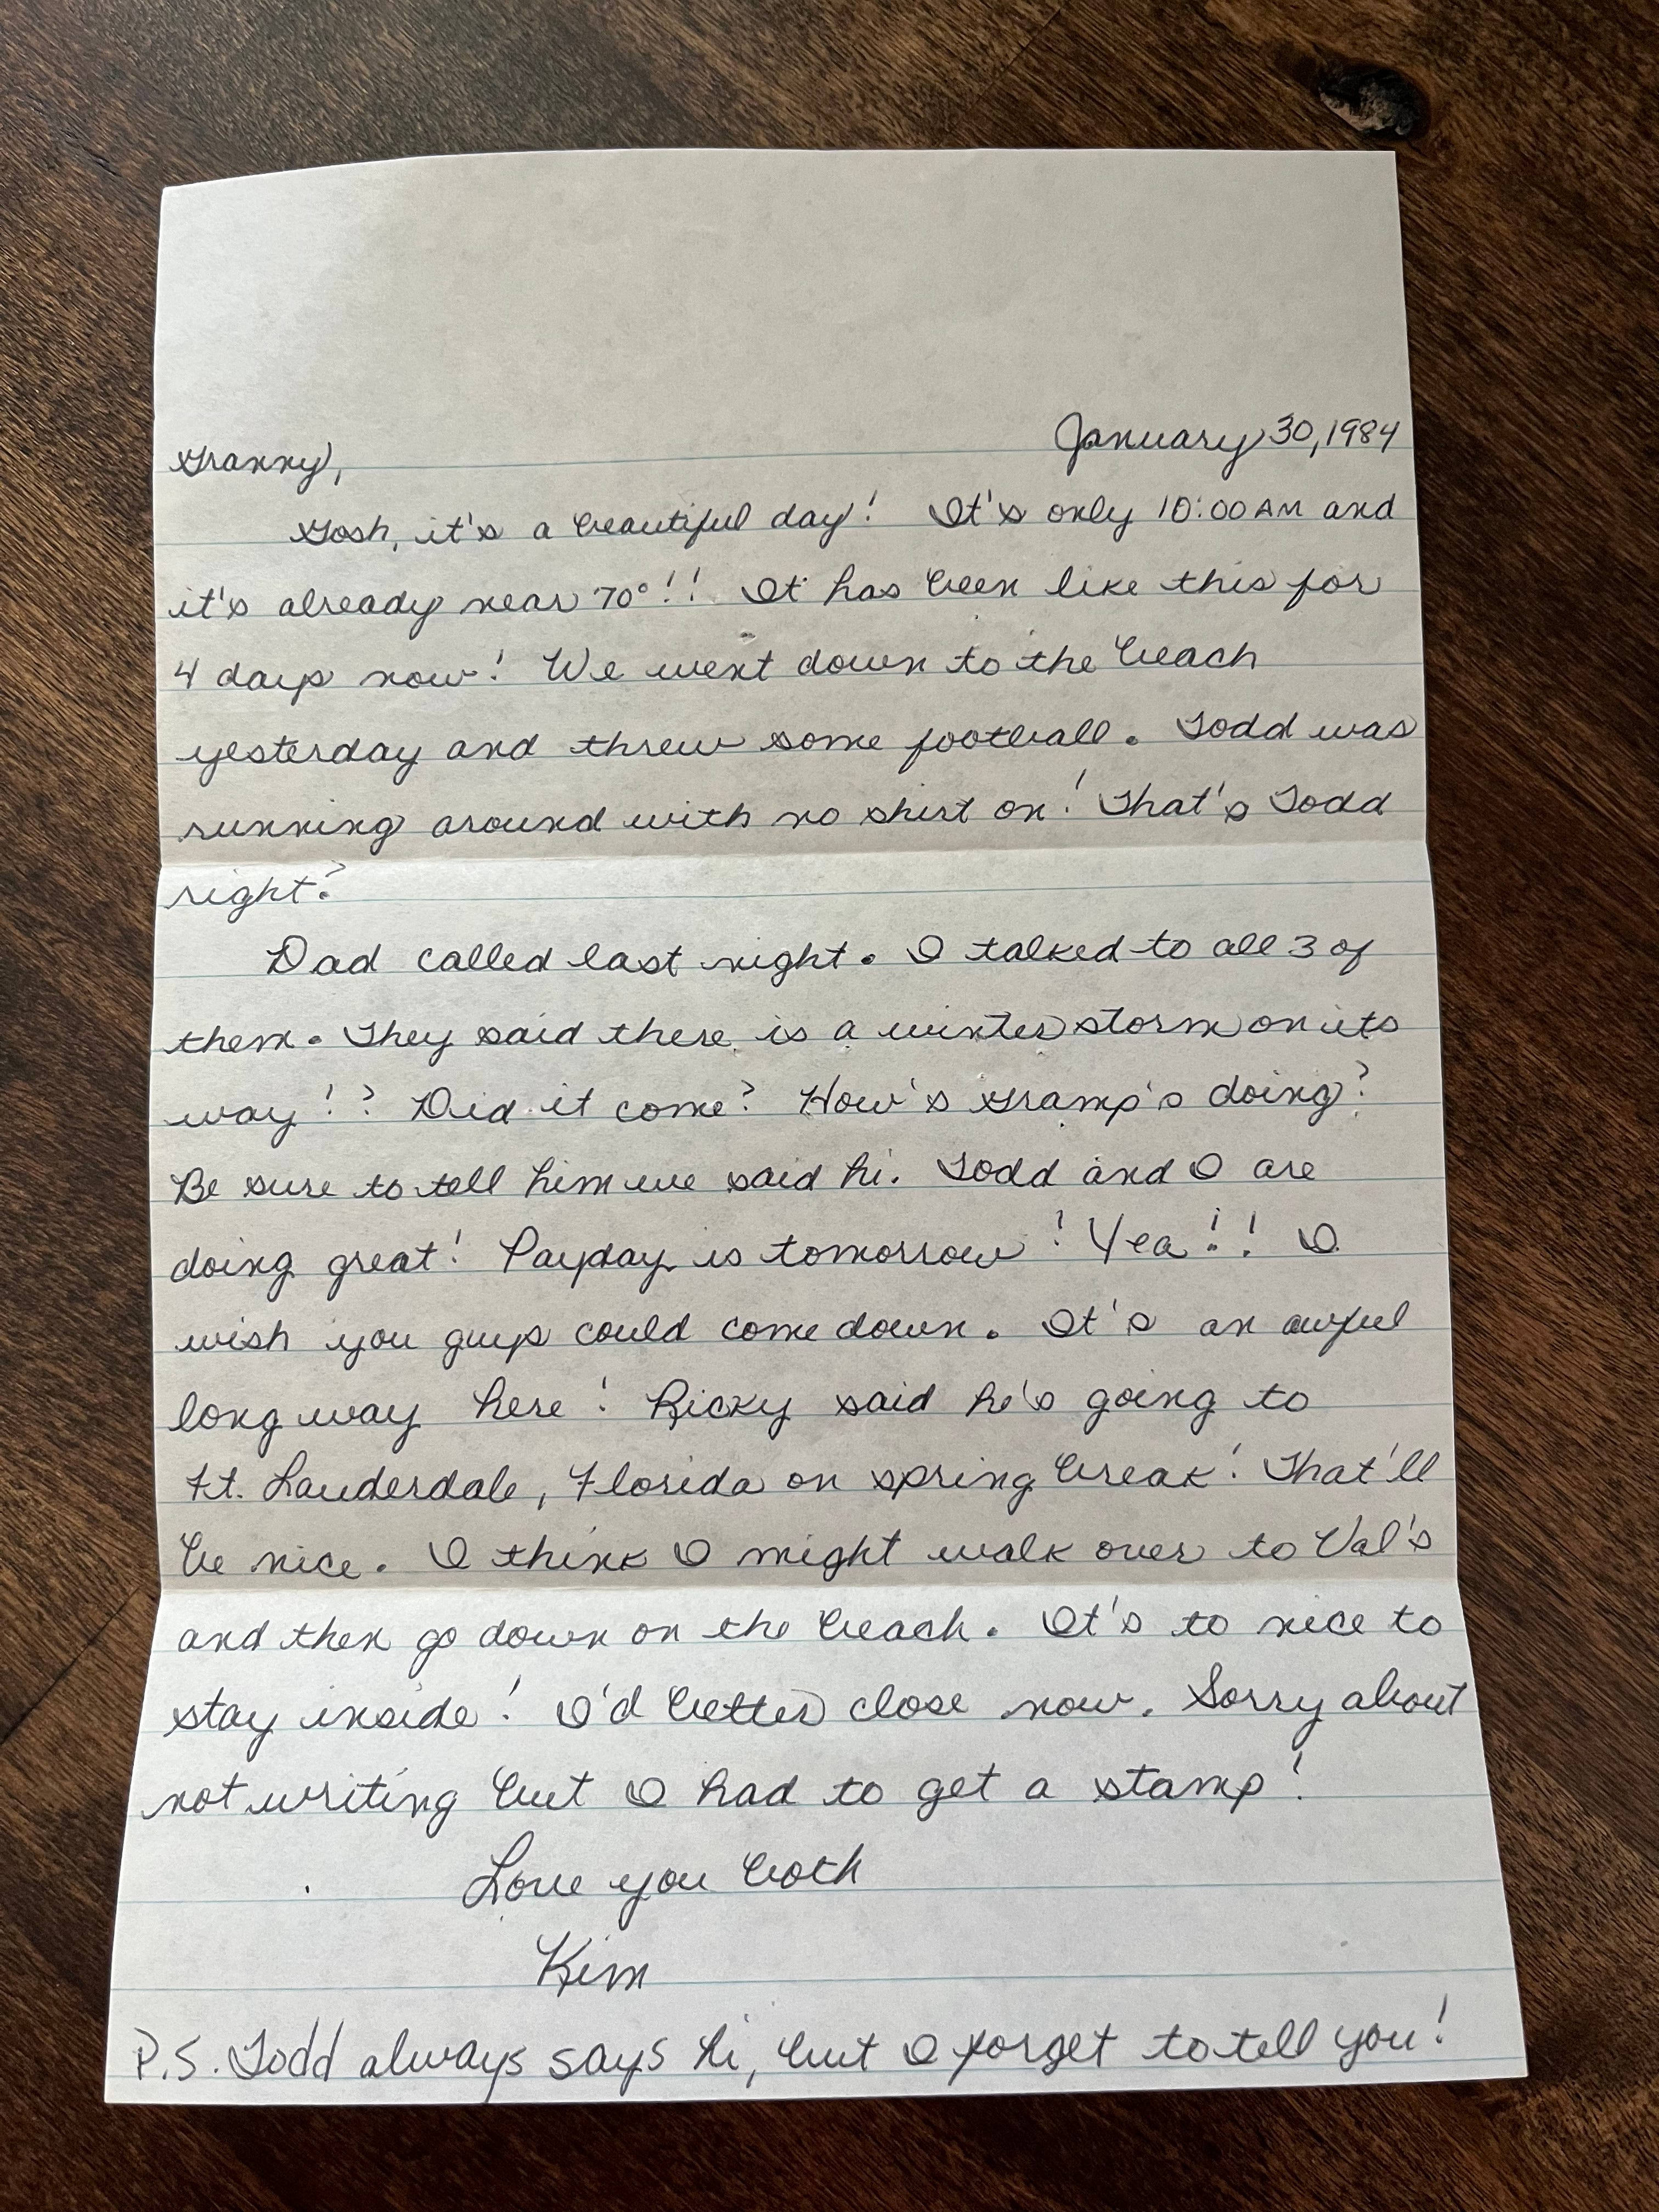 January 30, 1984
Granny,
Gosh, it's a beautiful day! It's only 10:00 AM and
it's already near 70°!! It has been like this for
4 days now! We went down to the beach
yesterday and threw some football. Todd was
running around with no shirt on! That's Todd
right?
Dad called last night. I talked to all 3 of
them. They said there is a winter storm on its
way!? Did it come? How's Gramp's doing?
Be sure to tell him we said hi. Todd and I are
doing great! Payday is tomorrow! Yea!! I
wish you guys could come down. It's an awful
long way here! Ricky said he's going to
Ft. Lauderdale, Florida on spring break! That'll
be nice. I think I might walk over to Val's
and then go down on the beach. It's to nice to
stay inside! I'd better close now. Sorry about
not writing but I had to get a stamp!
Love you both
Kim
P.S. Todd always says hi, but I forget to tell you!